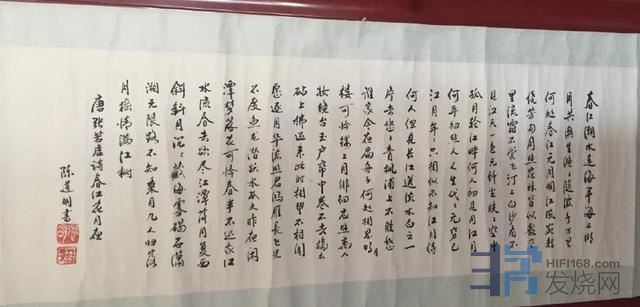 春江潮水连海平海上明
月共潮生滟〻随波千万里
何处春江无月明江流宛转
绕芳甸月照花林皆似霰空
里流霜不觉飞汀上白沙看不
见江天一色无纤尘皎〻空中
孤月轮江畔何人初见月江月
何年初照人人生代〻无穷已
江月年〻只相似不知江月待
何人但见长江送流水白云一
片去悠〻青枫浦上不胜愁
谁家今夜扁舟子何处相思明月
楼可怜楼上月徘徊应照离人
妆镜台玉户帘中卷不去捣衣
砧上拂还来此时相望不相闻
愿逐月华流照君鸿雁长飞光
不度鱼龙潜跃水成文昨夜闲
潭梦落花可怜春半不还家江
水流春去欲尽江潭落月复西
斜斜月沉〻藏海雾碣石潇
湘无限路不知乘月几人归落
月摇情满江树
唐张若虚诗春江花月夜
陈道明书
HIFI168.com
发烧网